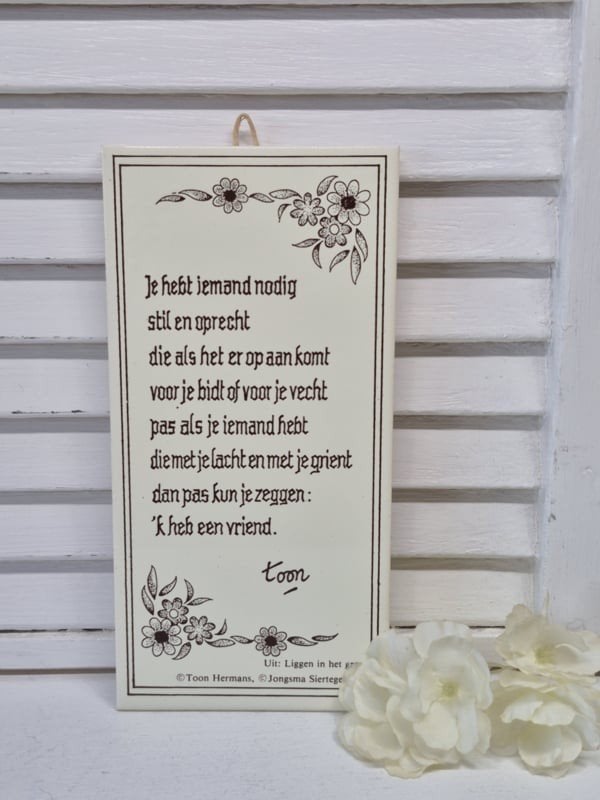 Je hebt iemand nodig
stil en oprecht
die als het er op aan komt
voor je bidt of voor je vecht
pas als je iemand hebt
die met je lacht en met je grient
dan pas kun je zeggen:
'k heb een vriend.
toon
Uit: Liggen in het
©Toon Hermans, ©Jongsma